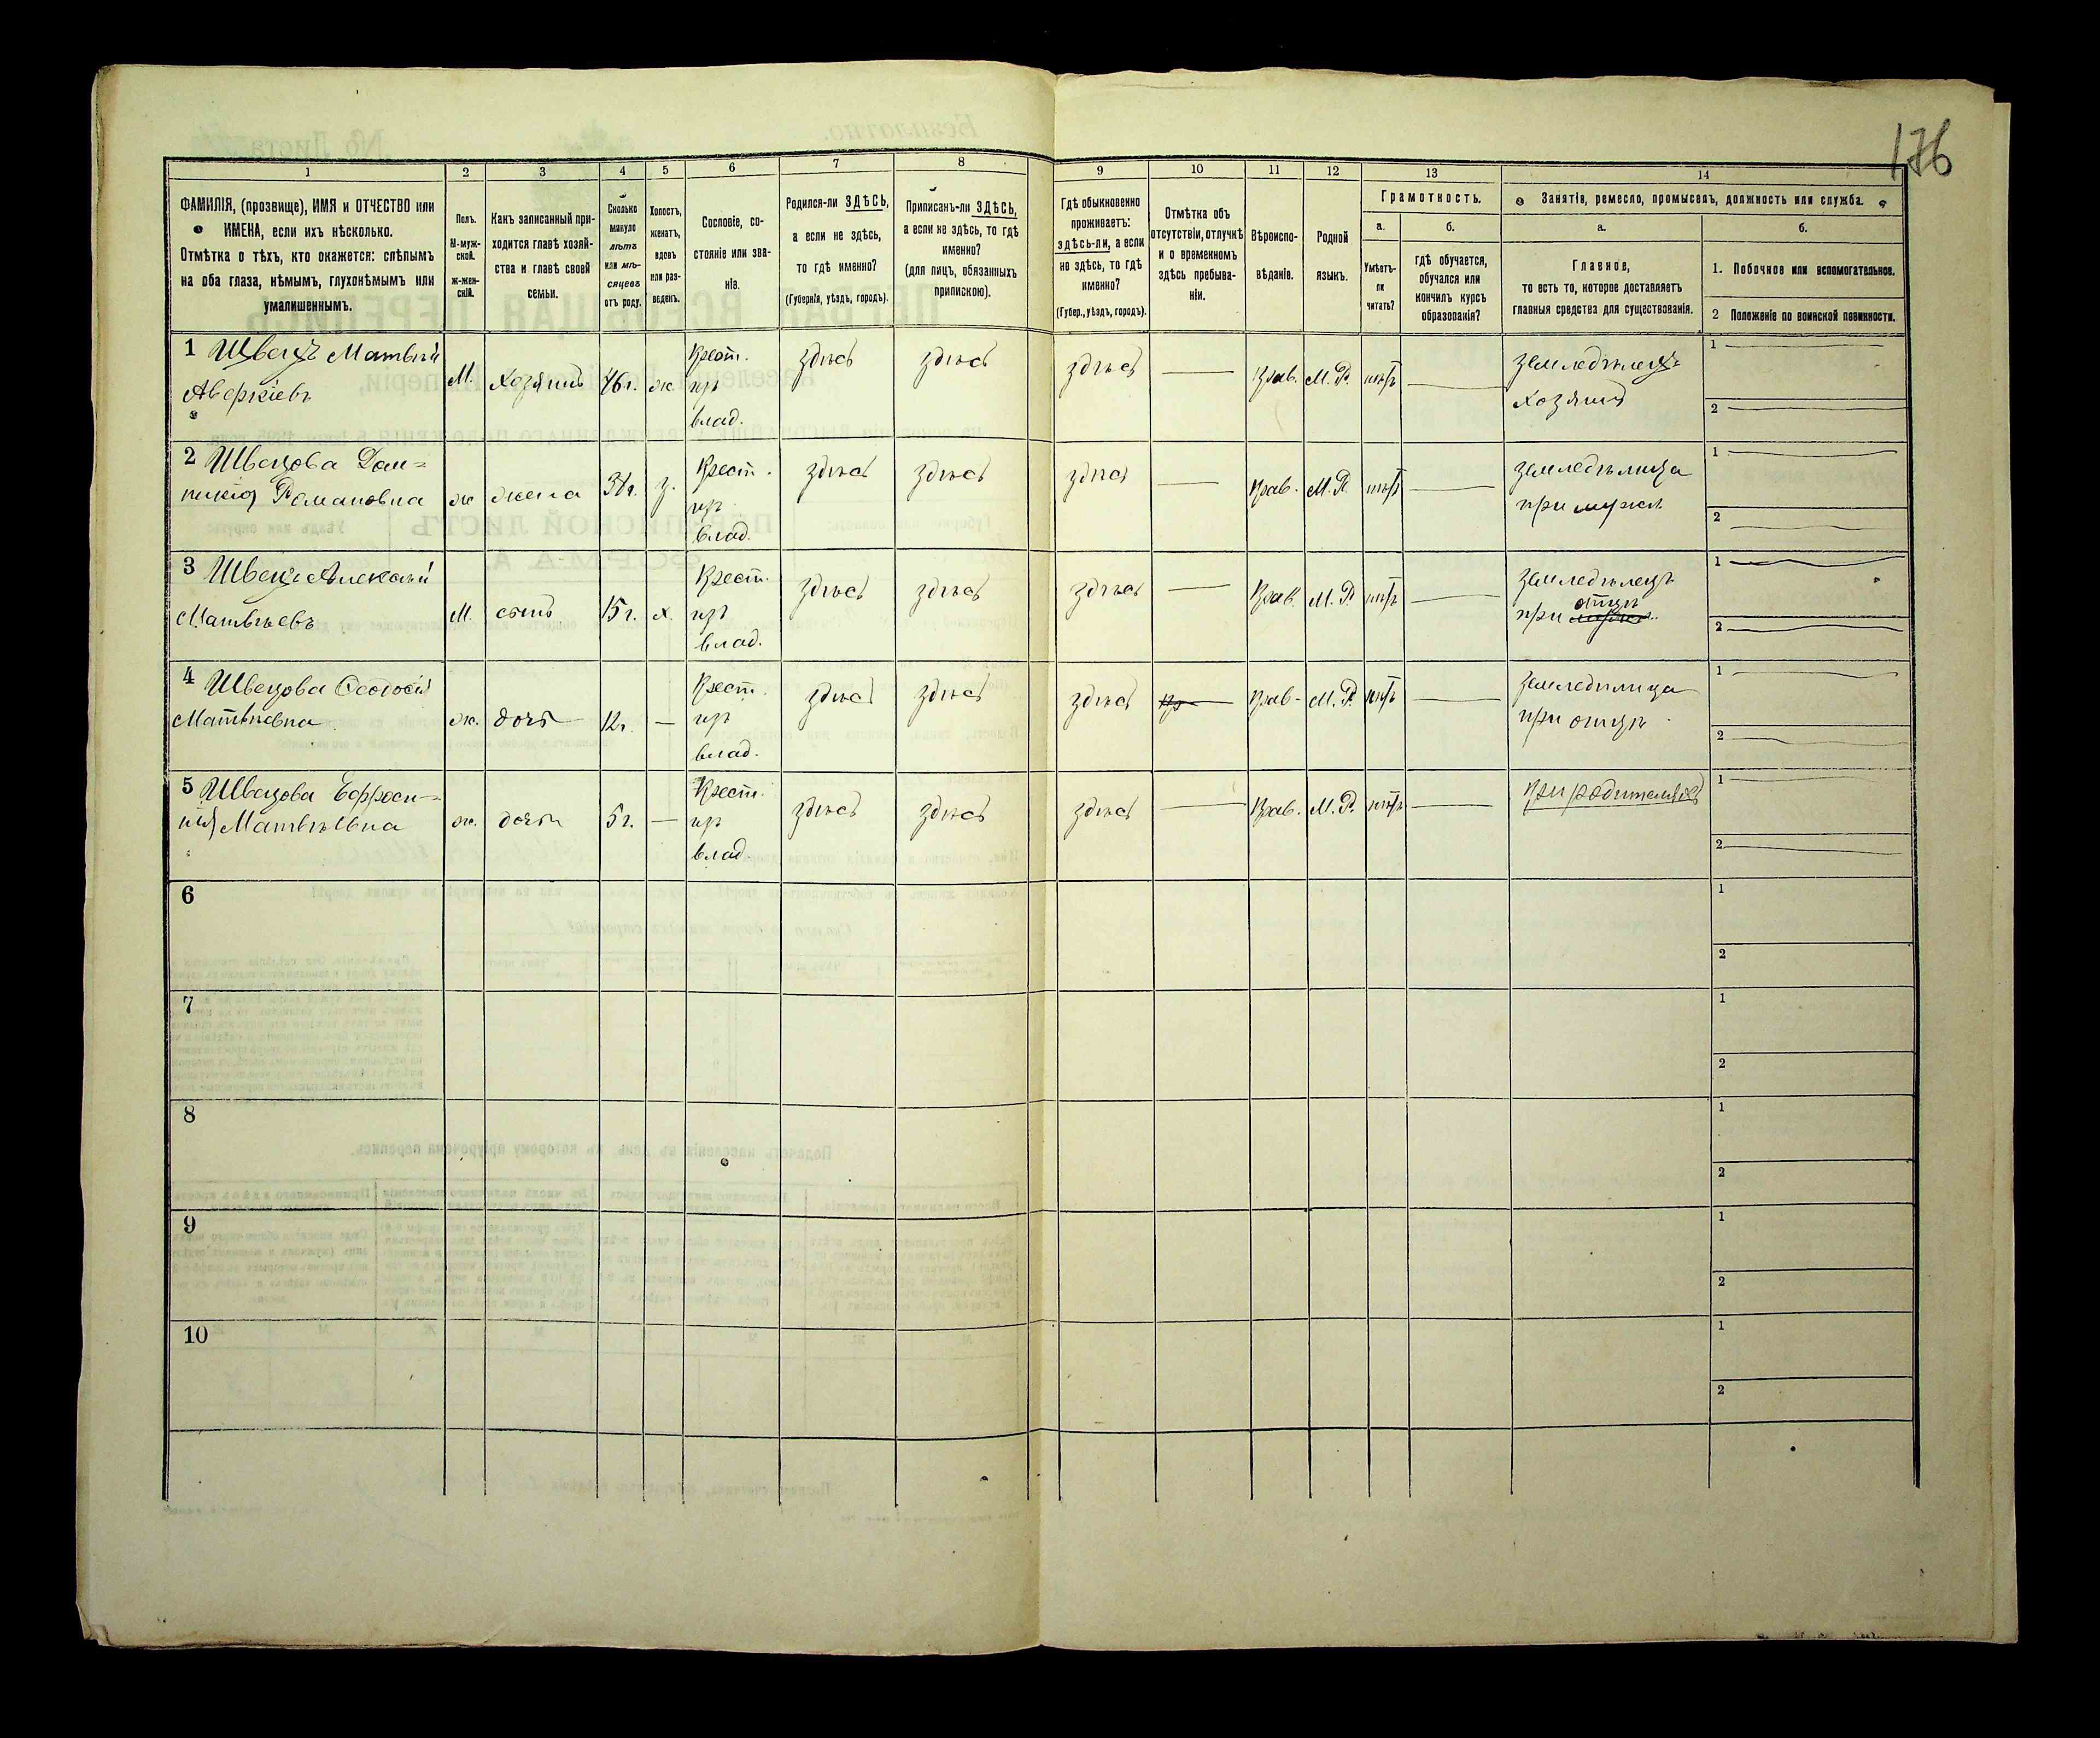 176
1 2 3 4 5 6 7 8 9 10 11 12 13 14
ФАМИЛІЯ, (прозвище), ИМЯ и ОТЧЕСТВО или
ИМЕНА, если ихъ нѣсколько.
Отмѣтка о тѣхъ, кто окажется: слѣпымъ
на оба глаза, нѣмымъ, глухонѣмымъ или
умалишеннымъ.
Полъ.
М-муж-
ской.
ж-жен-
скій.
Какъ записанный при-
ходится главѣ хозяй-
ства и главѣ своей
семьи.
Сколько
минуло
лѣтъ
или мѣ-
сяцевъ
отъ роду.
Холостъ,
женатъ,
вдовъ
или раз-
веденъ.
Сословіе, со-
стояніе или зва-
ніе.
Родился-ли ЗДѢСЬ,
а если не здѣсь,
то гдѣ именно?
(Губернія, уѣздъ, городъ).
Приписанъ-ли ЗДѢСЬ,
а если не здѣсь, то гдѣ
именно?
(для лицъ, обязанныхъ
припискою).
Гдѣ обыкновенно
проживаетъ:
здѣсь-ли, а если
не здѣсь, то гдѣ
именно?
(Губер., уѣздъ, городъ).
Отмѣтка объ
отсутствіи, отлучкѣ
и о временномъ
здѣсь пребыва-
ніи.
Вѣроиспо-
вѣданіе.
Родной
языкъ.
Грамотность.
а.
Умѣетъ-
ли
читать?
б.
гдѣ обучается,
обучался или
кончилъ курсъ
образованія?
Занятіе, ремесло, промыселъ, должность или служба.
а.
Главное,
то есть то, которое доставляетъ
главныя средства для существованія.
б.
1. Побочное или вспомогательное.
2 Положеніе по воинской повинности.
1 Швецъ Матвѣй
Аверкіевъ
М. Хозяинъ 46 г. ж.
Крест.
изъ
влад.
здѣсь здѣсь здѣсь — Прав. М. Р. нѣтъ —
земледѣлецъ
хозяинъ
1 —
2 —
2 Швецова Дом=
никія Романовна
ж жена г. з.
Крест.
изъ
влад.
здѣсь здѣсь здѣсь — Прав. М. Р. нѣтъ —
земледѣлица
при мужѣ
1 —
2 —
3 Швецъ Алексѣй
Матвѣевъ
М. сынъ 15 г. х.
Крест.
изъ
влад.
здѣсь здѣсь здѣсь — Прав. М. Р. нѣтъ —
земледѣлецъ
при отцѣ
1 —
2 —
4 Швецова Ѳеодосія
Матвѣевна
ж. дочь 12 г. —
Крест.
изъ
влад.
здѣсь здѣсь здѣсь — Прав. М. Р. нѣтъ —
земледѣлица
при отцѣ
1 —
2 —
5 Швецова Ефроси=
нія Матвѣевна
ж. дочь 5 г. —
Крест.
изъ
влад.
здѣсь здѣсь здѣсь — Прав. М. Р. нѣтъ —
при родителяхъ
1 —
2 —
6
1
2
7
1
2
8
1
2
9
1
2
10
1
2